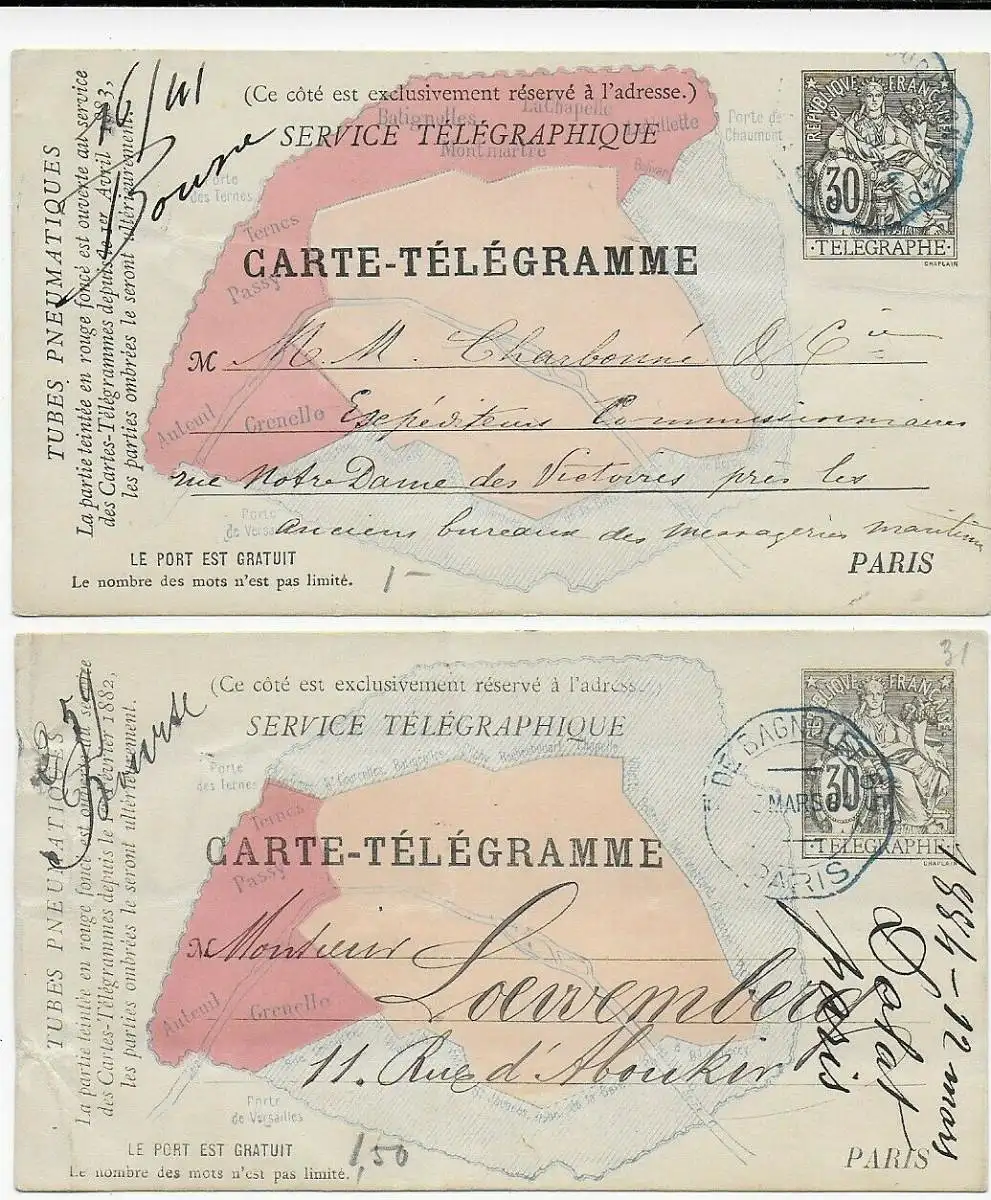 (Ce côté est exclusivement réservé à l'adresse.)
SERVICE TÉLÉGRAPHIQUE
CARTE-TÉLÉGRAMME
TUBES PNEUMATIQUES
La partie teintée en rouge foncé est ouverte au service
des Cartes-Télégrammes depuis le 1er Avril 1883,
les parties ombrées le seront ultérieurement.
6/41
Bourse
REPUBLIQUE FRANÇAISE
30
TELEGRAPHE
CHAPLAIN
Batignolles
LaChapelle
laVillette
Montmartre
Porte de
Chaumont
Porte
des Ternes
Ternes
Passy
Auteuil
Grenelle
Porte
de Versailles
M M. M. Charbonné & Cie
Expéditeurs Commissionnaires
rue Notre Dame des Victoires près les
anciens bureaux des messageries maritimes
LE PORT EST GRATUIT
Le nombre des mots n'est pas limité.
1-
PARIS
31
(Ce côté est exclusivement réservé à l'adresse.)
SERVICE TÉLÉGRAPHIQUE
CARTE-TÉLÉGRAMME
TUBES PNEUMATIQUES
La partie teintée en rouge foncé est ouverte au service
des Cartes-Télégrammes depuis le Février 1882,
les parties ombrées le seront ultérieurement.
REPUBLIQUE FRANÇAISE
30
TELEGRAPHE
CHAPLAIN
DE BAGNOLET
MARS 84
PARIS
Porte
des Ternes
Ternes
Passy
Auteuil
Grenelle
Porte
de Versailles
M Monsieur Loewemberg
11. Rue d'Aboukir
paris
1884-12 mars
LE PORT EST GRATUIT
Le nombre des mots n'est pas limité.
1,50
PARIS